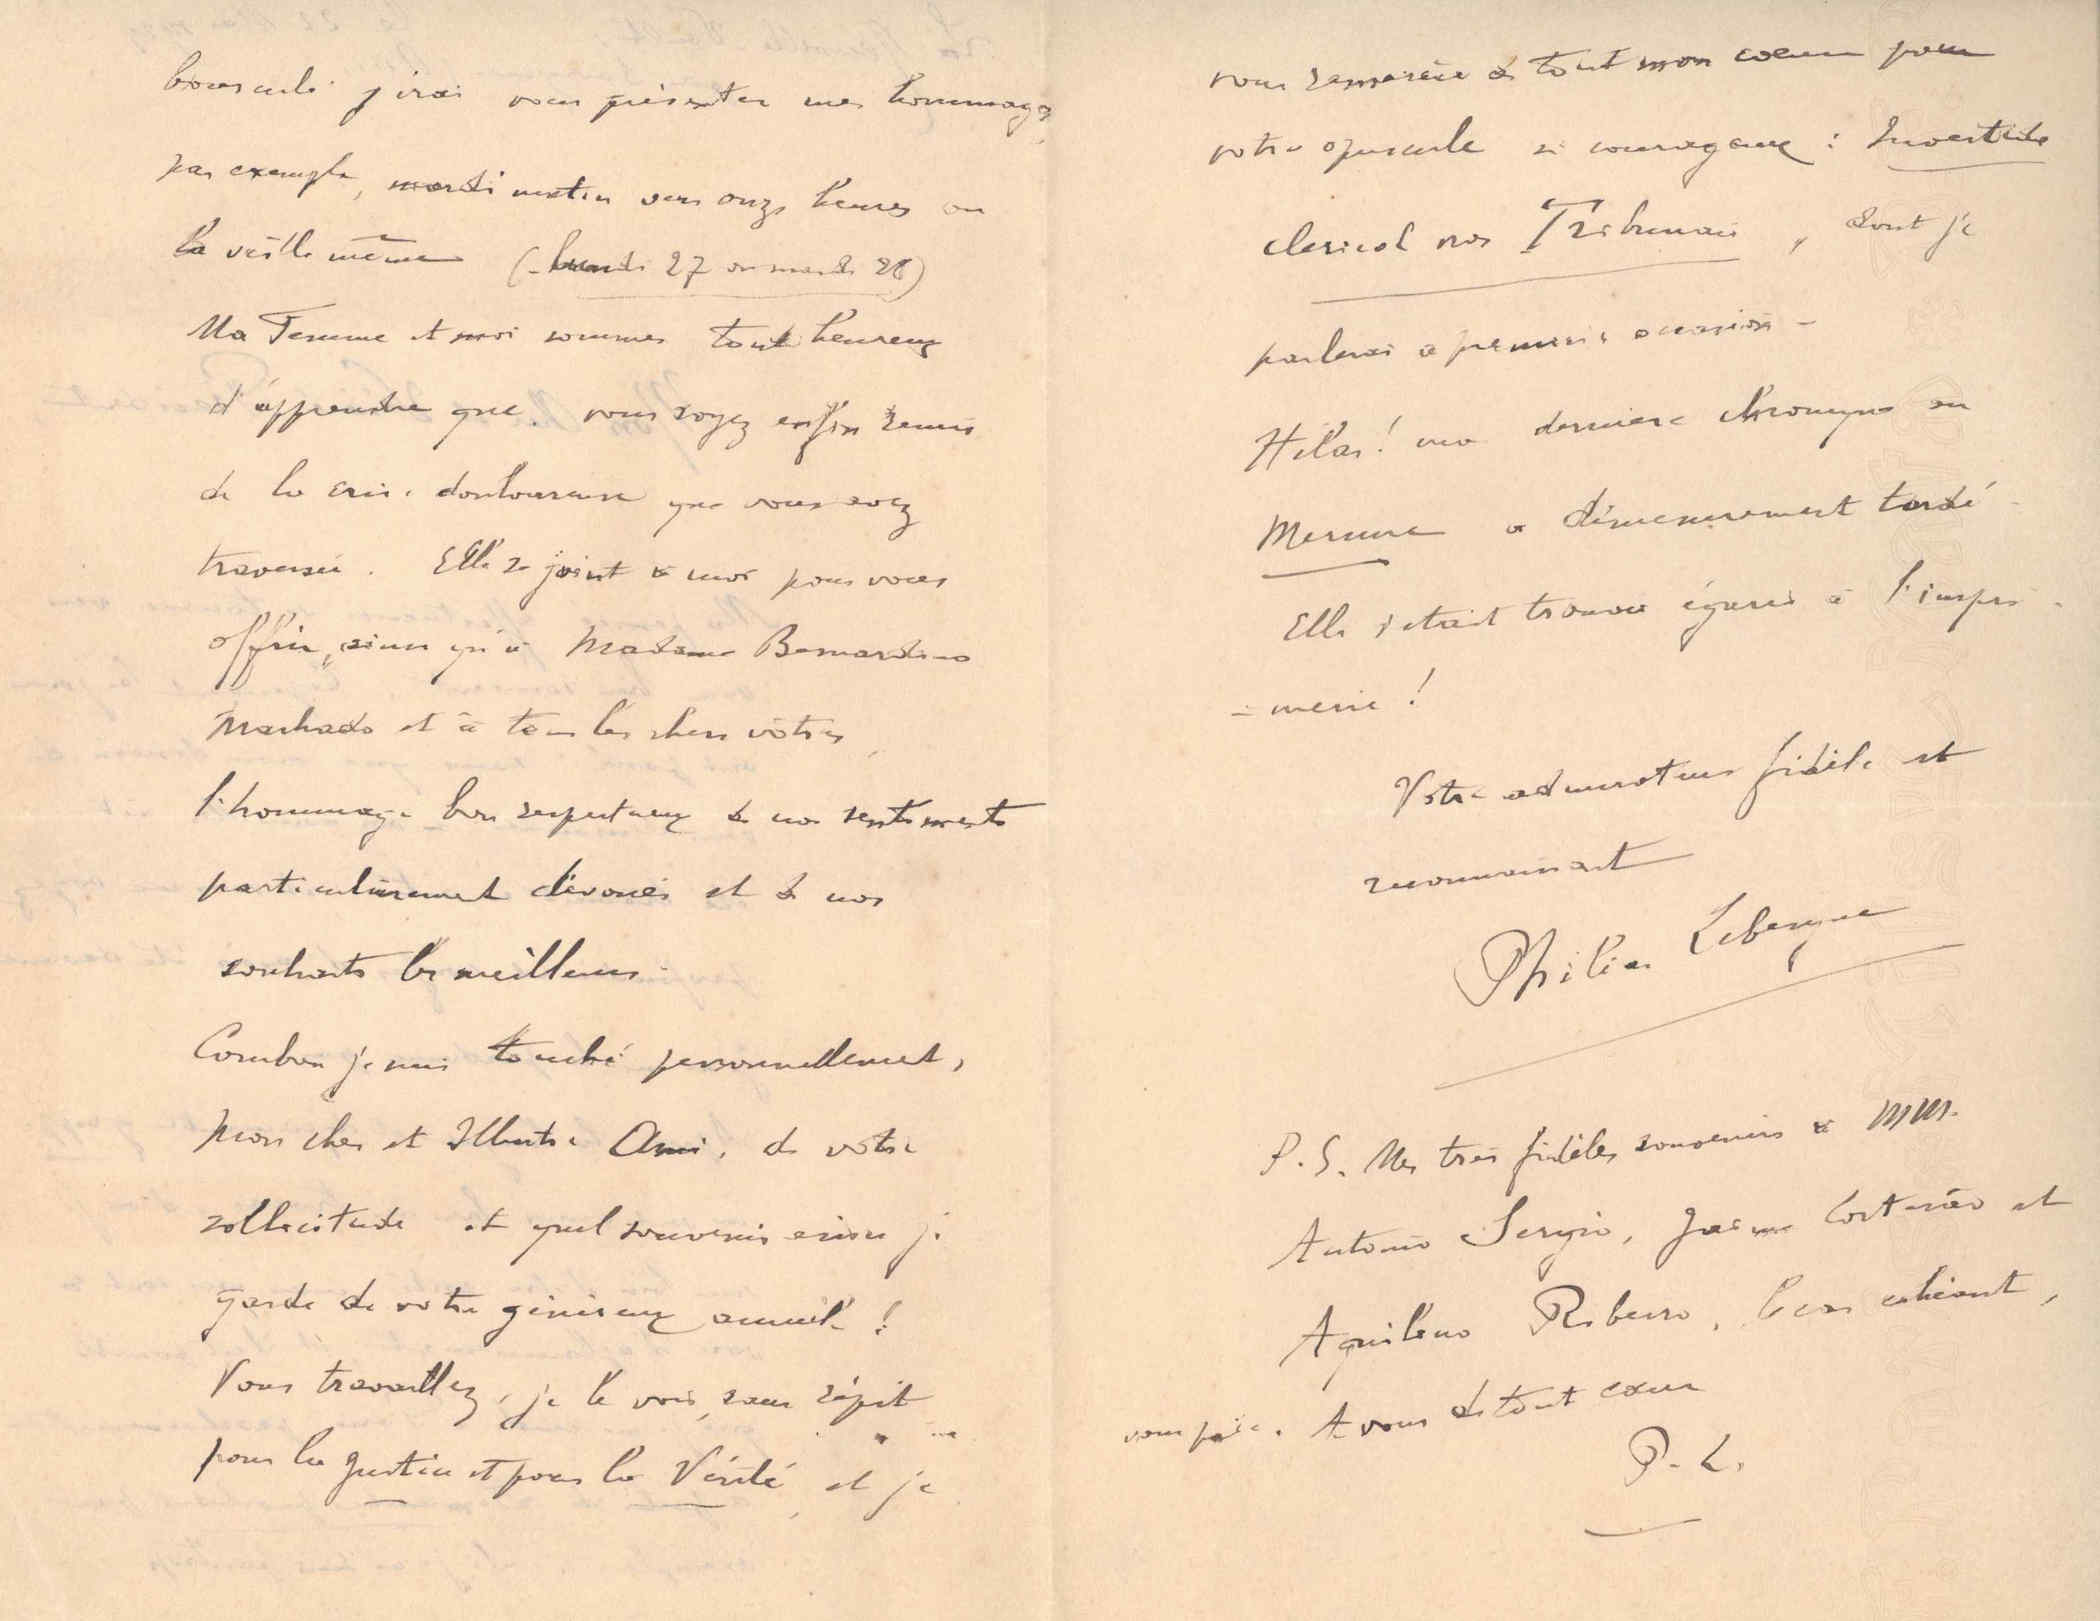 bousculé j'irai vous présenter mes hommages
par exemple, mardi matin vers onze heures ou
la veille même (lundi 27 ou mardi 28)
Ma Femme et moi sommes tout heureux
d'apprendre que vous soyez enfin remis
de la crise douloureuse que vous avez
traversée. Elle se joint à moi pour vous
offrir, ainsi qu'à Madame Bernardino
Machado et à tous les chers vôtres,
l'hommage bien respectueux de nos sentiments
particulièrement dévoués et de nos
souhaits les meilleurs.
Combien je suis touché personnellement,
mon cher et Illustre Ami, de votre
sollicitude et quel souvenir je
garde de votre généreux accueil !
Vous travaillez, je le vois, sans répit
pour la Justice et pour la Vérité, et je
vous remercie de tout mon cœur pour
votre opuscule si courageux :
clerical nos Tribunais, dont je
parlerai à première occasion -
Hélas ! ma dernière chronique au
Mercure a démesurement tardé -
Elle s'était trouvée égarée à l'impri-
- merie !
Votre admirateur fidèle et
reconnaissant
Philéas Lebesgue
P. S. Mes très fidèles souvenirs à MM.
Antonio Sergio, Jaime Cortesão et
Aquilino Ribeiro, le cas échéant,
vous prie. A vous de tout cœur
P. L.